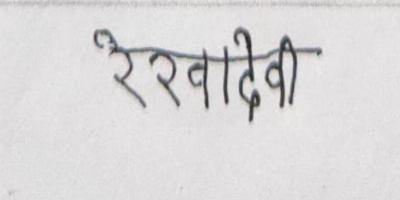 रेखादेवी